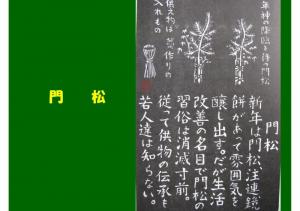 門　松
年神の降臨を待つ門松
供え物は
入れもの
門松
新年は門松注連鏡
餅があって雰囲気を
醸し出す。だが生活
改善の名目で門松の
習俗は消滅寸前。
従って供物の伝承も
若人達は知らない。